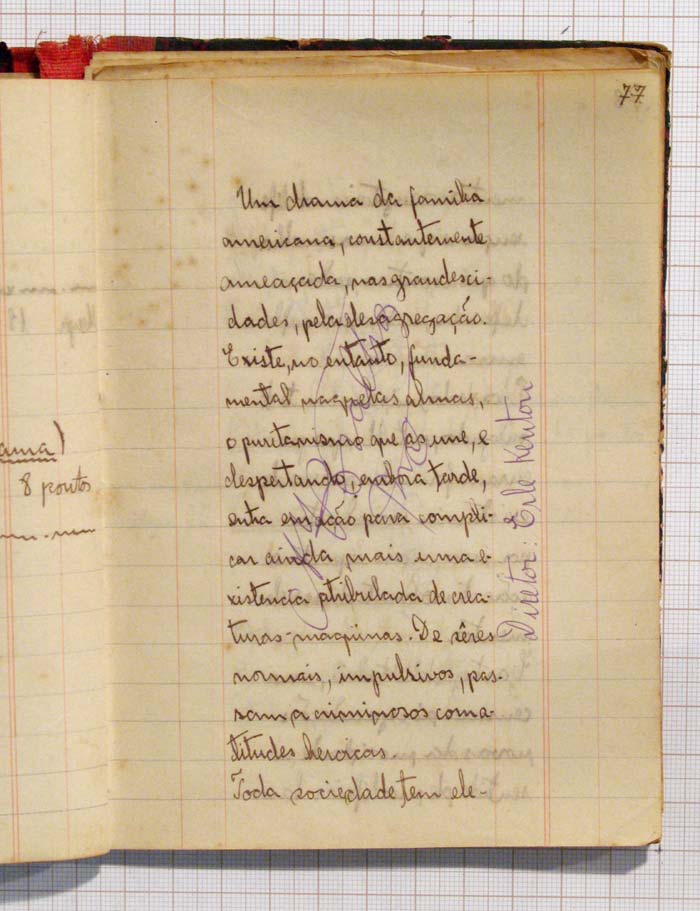 77
Um drama da familia
americana, constantemente
ameaçada, nas grandes ci-
dades, pela desagregação.
Existe, no entanto, funda-
mental naquelas almas,
o puritanismo que as une, e
despertando, embora tarde,
entra em ação para compli-
car ainda mais uma e-
xistencia atribulada de crea-
turas-maquinas. De sêres
normais, impulsivos, pas-
sam a criminosos com a-
titudes heroicas.
Toda sociedade tem ele-
Diretor: Erle Kenton
ama)
8 pontos